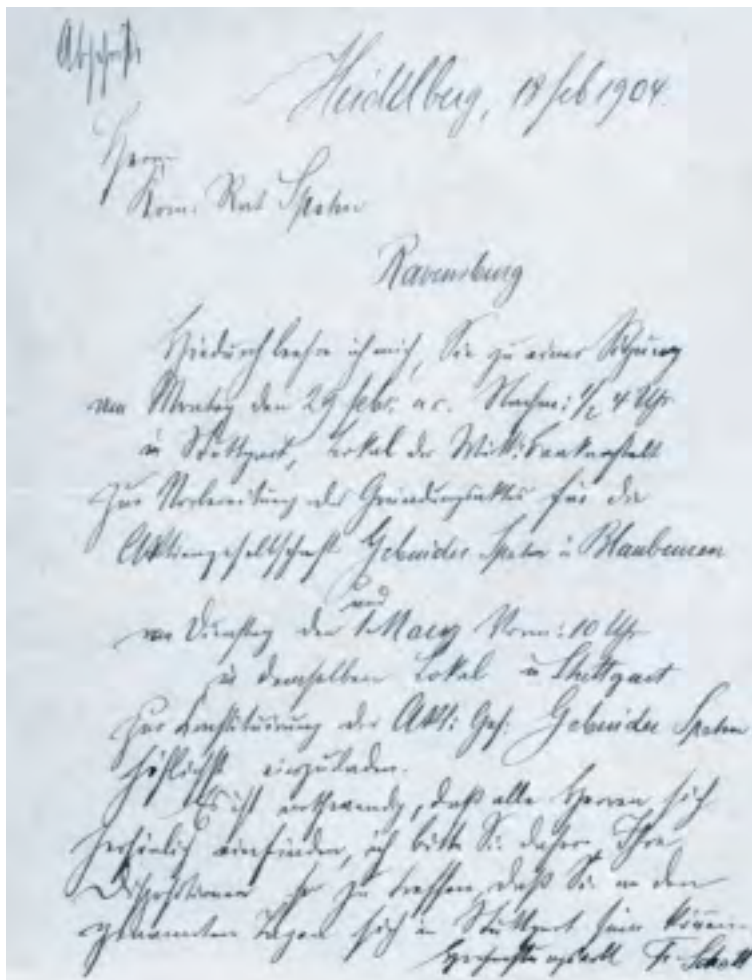 Abschrift
Heidelberg, 18 Feb 1904.
Herrn
Kom. Rat Spohn
Ravensburg
Hiedurch beehre ich mich, Sie zu einer Sitzung
am Montag den 29 Febr. a. c. Nachm: ½ 4 Uhr
in Stuttgart, Lokal der
zur Vorbereitung des Gründungsaktes für die
Aktiengesellschaft Gebrüder Spohn in Blaubeuren
und
am Dienstag den 1. Maerz Vorm: 10 Uhr
in demselben Lokal in Stuttgart
zur Constituirung der Akt: Ges: Gebrüder Spohn
höflichst einzuladen.
Es ist nothwendig, daß alle Herren sich
persönlich einfinden, ich bitte Sie daher, Ihre
Dispositionen so zu treffen daß Sie an den
genannten Tagen sich in Stuttgart sein können.
Hochachtungsvoll Fr. Schott